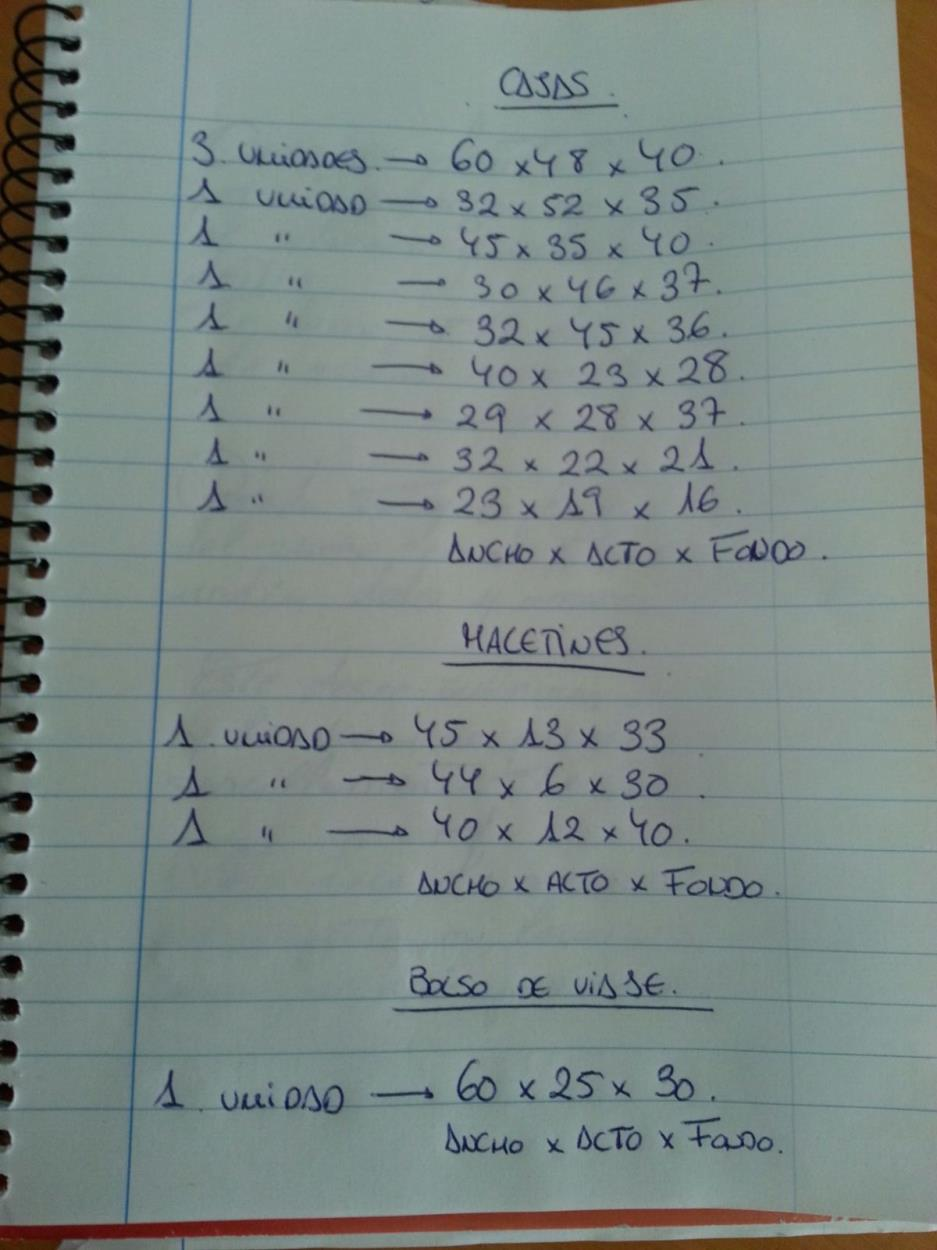 CAJAS.
3 UNIDADES. → 60 x 48 x 40.
1 UNIDAD → 32 x 52 x 35.
1 " → 45 x 35 x 40.
1 " → 30 x 46 x 37.
1 " → 32 x 45 x 36.
1 " → 40 x 23 x 28.
1 " → 29 x 28 x 37.
1 " → 32 x 22 x 21.
1 " → 23 x 19 x 16.
ANCHO x ALTO x FONDO.
MALETINES.
1 UNIDAD → 45 x 13 x 33.
1 " → 44 x 6 x 30.
1 " → 40 x 12 x 40.
ANCHO x ALTO x FONDO.
BOLSO DE VIAJE.
1 UNIDAD → 60 x 25 x 30.
ANCHO x ALTO x FONDO.